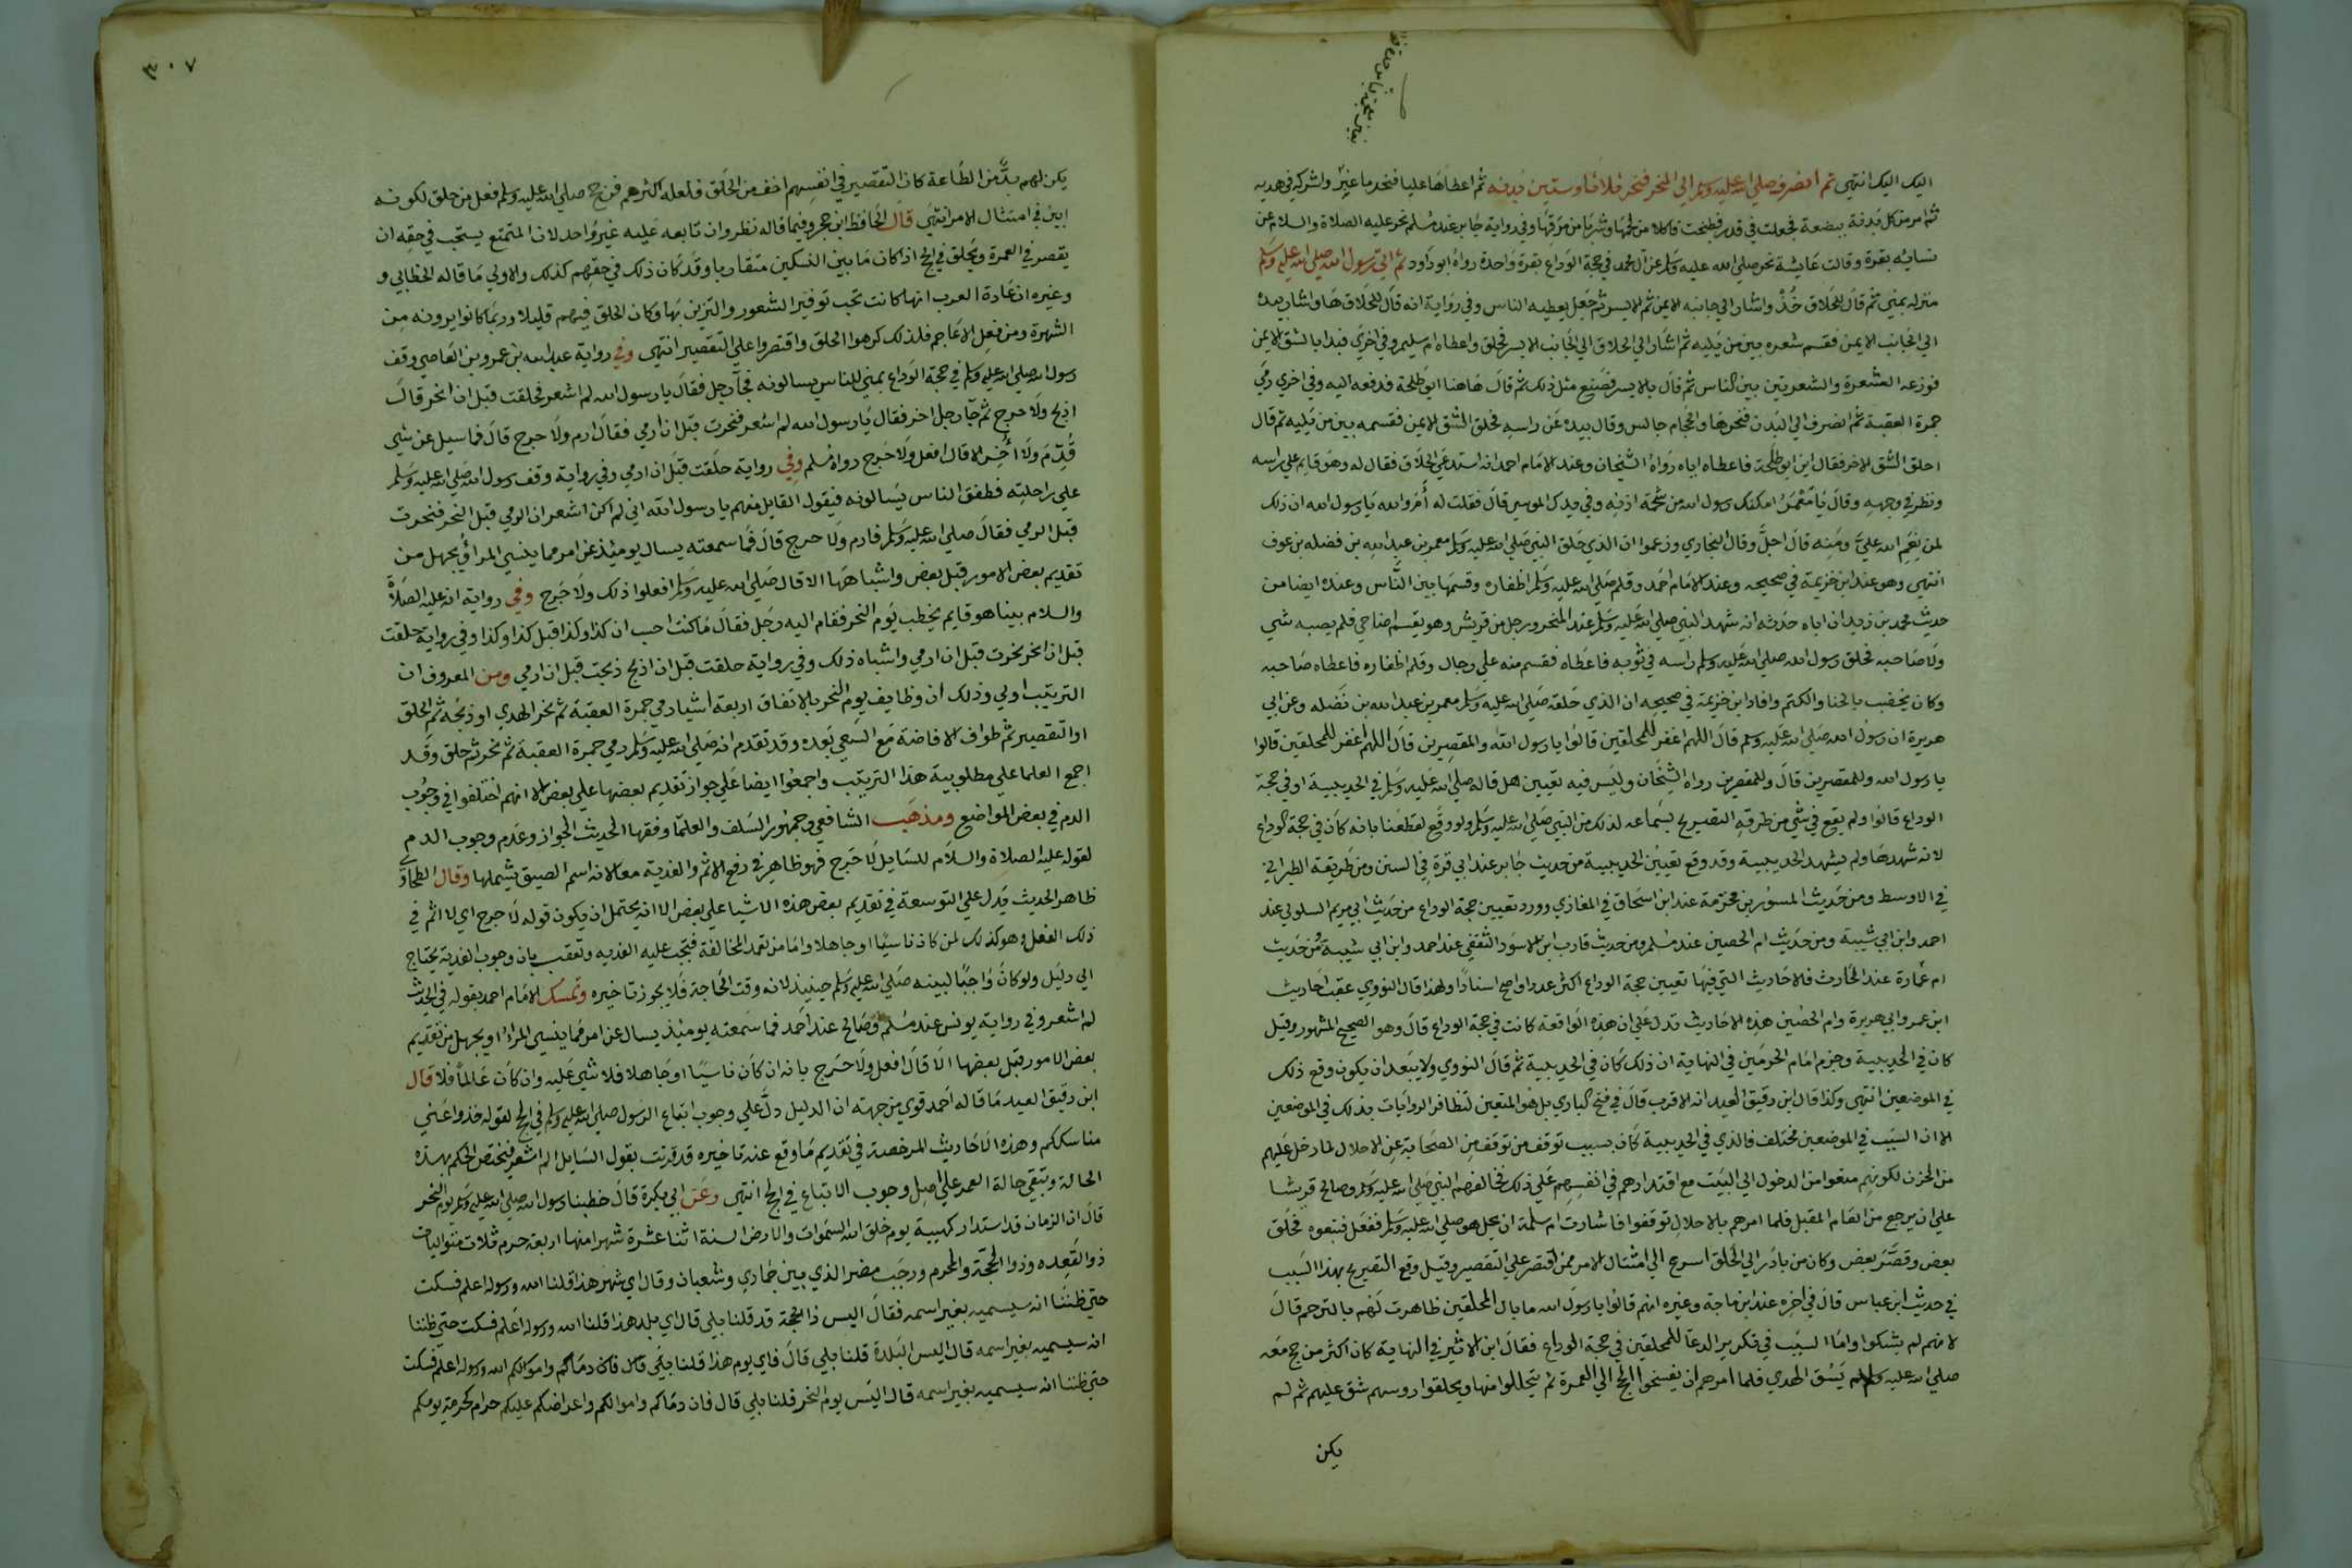 اليك اليك انتهي ثم انصرف صلي الله عليه وسلم الي المنحر فنحر ثلاثا وستين بدنه ثم اعطاها عليا فنحر ما غبر واشركه في هديه
ثم امر من كل بدنة ببضعة فجعلت في قدر فطبخت فاكلا من لحمها وشربا من مرقها وفي رواية جابر عند مسلم نحر عليه الصلاة والسلام عن
نسائه بقرة وقالت عايشة نحر صلي الله عليه وسلم عن ال محمد في حجة الوداع بقرة واحدة رواه ابو داود ثم اتي رسول الله صلي الله عليه وسلم
منزله بمني ثم قال للحلاق خذ واشار الي جانبه الايمن ثم الايسر ثم جعل يعطيه الناس وفي رواية انه قال للحلاق ها واشار بيده
الي الجانب الايمن فقسم شعره بين من يليه ثم اشار الي الحلاق الي الجانب الايسر فحلق واعطاه ام سليم وفي اخري فبدا بالشق الايمن
فوزعه الشعرة والشعرتين بين الناس ثم قال بالايسر فصنع مثل ذلك ثم قال هاهنا ابو طلحة فدفعه اليه وفي اخري رمي
جمرة العقبة ثم انصرف الي البدن فنحرها والحجام جالس وقال بيده عن راسه فحلق الشق الايمن فقسمه بين من يليه ثم قال
احلق الشق الاخر فقال اين ابو طلحة فاعطاه اياه رواه الشيخان وعند الامام احمد انه استدعي الحلاق فقال له وهو قايم علي راسه
ونظر في وجهه وقال يا معمر امكنك رسول الله من شحمة اذنه وفي يدك الموسي قال فقلت له أمَا والله يا رسول الله ان ذلك
لمن نعم الله عليّ ومنه قال اجل وقال البخاري وزعموا ان الذي حلق النبي صلي الله عليه وسلم معمر بن عبد الله بن نضله بن عوف
انتهي وهو عند ابن خزيمة في صحيحه وعند الامام احمد وقلم صلي الله عليه وسلم اظفاره وقسمها بين الناس وعنده ايضا من
حديث محمد بن زيد ان اباه حدثه انه شهد النبي صلي الله عليه وسلم عند المنحر ورجل من قريش وهو يقسم اضاحي فلم يصبه شي
ولا صاحبه فحلق رسول الله صلي الله عليه وسلم راسه في ثوبه فاعطاه فقسم منه علي رجال وقلم اظفاره فاعطاه صاحبه
وكان يخضب بالحنا والكتم وافاد ابن خزيمة في صحيحه ان الذي حلقه صلي الله عليه وسلم معمر بن عبد الله بن نضله وعن ابي
هريرة ان رسول الله صلي الله عليه وسلم قال اللهم اغفر للمحلقين قالوا يا رسول الله والمقصرين قال اللهم اغفر للمحلقين قالوا
يا رسول الله وللمقصرين قال وللمقصرين رواه الشيخان وليس فيه تعيين هل قاله صلي الله عليه وسلم في الحديبية او في حجة
الوداع قالوا ولم يقع في شي من طرقه التصريح بسماعه لذلك من النبي صلي الله عليه وسلم ولو وقع لقطعنا بانه كان في حجة الوداع
لانه شهدها ولم يشهد الحديبية وقد وقع تعيين الحديبية من حديث جابر عند ابي قرة في السنن ومن طريقه الطبراني
في الاوسط ومن حديث المسور بن مخرمة عند ابن اسحاق في المغازي وورد تعيين حجة الوداع من حديث ابي مريم السلولي عند
احمد وابن ابي شيبة ومن حديث ام الحصين عند مسلم ومن حديث قارب ابن الاسود الثقفي عند احمد وابن ابي شيبة ومن حديث
ام عمارة عند الحارث فالاحاديث التي فيها تعيين حجة الوداع اكثر عددا واصح اسنادا ولهذا قال النووي عقب احاديث
ابن عمر وابي هريرة وام الحصين هذه الاحاديث تدل علي ان هذه الواقعة كانت في حجة الوداع قال وهو الصحيح المشهور وقيل
كان في الحديبية وجزم امام الحرمين في النهاية ان ذلك كان في الحديبية ثم قال النووي ولا يبعد ان يكون وقع ذلك
في الموضعين انتهي وكذا قال ابن دقيق العيد انه الاقرب قال في فتح الباري بل هو المتعين لتظافر الروايات بذلك في الموضعين
الا ان السبب في الموضعين مختلف فالذي في الحديبية كان بسبب توقف من توقف من الصحابة عن الاحلال لما دخل عليهم
من الحزن لكونهم منعوا من الدخول الي البيت مع اقتدارهم في انفسهم علي ذلك فخالفهم النبي صلي الله عليه وسلم وصالح قريشا
علي ان يرجع من العام المقبل فلما امرهم بالاحلال توقفوا فاشارت ام سلمة ان يحل هو صلي الله عليه وسلم ففعل فتبعوه فحلق
بعض وقصّر بعض وكان من بادر الي الحلق اسرع الي امتثال الامر ممن اقتصر علي التقصير وقيل وقع التصريح بهذا السبب
في حديث ابن عباس قال في اخره عند ابن ماجة وغيره انهم قالوا يا رسول الله ما بال المحلقين ظاهرت لهم بالترحم قال
لانهم لم يشكوا واما السبب في تكرير الدعا للمحلقين في حجة الوداع فقال ابن الاثير في النهاية كان اكثر من حج معه
صلي الله عليه وسلم لم يسق الهدي فلما امرهم ان يفسخوا الحج الي العمرة ثم يتحللوا منها ويحلقوا روسهم شق عليهم ثم لم
يكن
٣٠٧
يكن لهم بدّ من الطاعة كان التقصير في انفسهم اخف من الحلق ففعله اكثرهم فرجح صلي الله عليه وسلم فعل من حلق لكونه
ابين في امتثال الامر انتهي قال الحافظ ابن حجر وفيما قاله نظر وان تابعه عليه غير واحد لان المتمتع يستحب في حقه ان
يقصر في العمرة ويحلق في الحج اذا كان ما بين النسكين متقاربا وقد كان ذلك في حقهم كذلك والاولي ما قاله الخطابي و
وغيره ان عادة العرب انها كانت تحب توفير الشعور والتزين بها وكان الحلق فيهم قليلا وربما كانوا يرونه من
الشهرة ومن فعل الاعاجم فلذلك كرهوا الحلق واقتصروا علي التقصير انتهي وفي رواية عبد الله بن عمرو بن العاصي وقف
رسول الله صلي الله عليه وسلم في حجة الوداع بمني للناس يسالونه فجآ رجل فقال يا رسول الله لم اشعر فحلقت قبل ان انحر قال
اذبح ولا حرج ثم جآ رجل اخر فقال يا رسول الله لم اشعر فنحرت قبل ان ارمي فقال ارم ولا حرج قال فما سيل عن شي
قُدّم ولا أُخّر الا قال افعل ولا حرج رواه مسلم وفي رواية حلقت قبل ان ارمي وفي رواية وقف رسول الله صلي الله عليه وسلم
علي راحلته فطفق الناس يسالونه فيقول القايل منهم يا رسول الله اني لم اكن اشعر ان الرمي قبل النحر فنحرت
قبل الرمي فقال صلي الله عليه وسلم فارم ولا حرج قال فما سمعته يسال يوميذ عن امر مما ينسي المرا او يجهل من
تقديم بعض الامور قبل بعض واشباهها الا قال صلي الله عليه وسلم افعلوا ذلك ولا حرج وفي رواية انه عليه الصلاة
والسلام بينا هو قايم يخطب يوم النحر فقام اليه رجل فقال ما كنت احسب ان كذا وكذا قبل كذا وكذا وفي رواية حلقت
قبل ان انحر نحرت قبل ان ارمي واشباه ذلك وفي رواية حلقت قبل ان اذبح ذبحت قبل ان ارمي ومن المعروف ان
الترتيب اولي وذلك ان وظايف يوم النحر بالاتفاق اربعة اشيا رمي جمرة العقبة ثم نحر الهدي او ذبحه ثم الحلق
او التقصير ثم طواف الافاضة مع السعي بعده وقد تقدم انه صلي الله عليه وسلم رمي جمرة العقبة ثم نحر ثم حلق وقد
اجمع العلما علي مطلوبية هذا الترتيب واجمعوا ايضا علي جواز تقديم بعضها علي بعض الا انهم اختلفوا في وجوب
الدم في بعض المواضع ومذهب الشافعي وجمهور السلف والعلما وفقها الحديث الجواز وعدم وجوب الدم
لقوله عليه الصلاة والسلام للسايل لا حرج فهو ظاهر في رفع الاثم والفدية معا لان اسم الضيق يشملها وقال الطحاوي
ظاهر الحديث يدل علي التوسعة في تقديم بعض هذه الاشيا علي بعض الا انه يحتمل ان يكون قوله لا حرج اي لا اثم في
ذلك الفعل وهو كذلك لمن كان ناسيا او جاهلا واما من تعمد المخالفة فتجب عليه الفديه وتعقب بان وجوب الفدية يحتاج
الي دليل ولو كان واجبا لبينه صلي الله عليه وسلم حينيذ لانه وقت الحاجة فلا يجوز تاخيره وتمسك الامام احمد بقوله في الحديث
لم اشعر وفي رواية يونس عند مسلم وصالح عند احمد فما سمعته يوميذ يسال عن امر مما ينسي المرا او يجهل من تقديم
بعض الامور قبل بعضها الا قال افعل ولا حرج بانه ان كان ناسيا او جاهلا فلا شي عليه وان كان عالما فلا قال
ابن دقيق العيد ما قاله احمد قوي من جهته ان الدليل دل علي وجوب اتباع الرسول صلي الله عليه وسلم في الحج لقوله خذوا عني
مناسككم وهذه الاحاديث المرخصة في تقديم ما وقع عنه تاخيره قد قرنت بقول السايل لم اشعر فتختص الحكم بهذه
الحالة وتبقي حالة العمد علي اصل وجوب الاتباع في الحج انتهي وعن ابي بكرة قال خطبنا رسول الله صلي الله عليه وسلم يوم النحر
قال ان الزمان قد استدار كهيية يوم خلق الله السموات والارض السنة اثنا عشرة شهرا منها اربعة حرم ثلاث متواليات
ذو القعده وذوا الحجة والمحرم ورجب مضر الذي بين جمادي وشعبان وقال اي شهر هذا قلنا الله ورسوله اعلم فسكت
حتي ظننا انه سيسميه بغير اسمه فقال اليس ذا الحجة قلنا بلي قال اي بلد هذا قلنا الله ورسوله اعلم فسكت حتي ظننا
انه سيسميه بغير اسمه قال اليس البلدة قلنا بلي قال فاي يوم هذا قلنا الله ورسوله اعلم فسكت
حتي ظننا انه سيسميه بغير اسمه قال اليس يوم النحر قلنا بلي قال فان دماكم واموالكم واعراضكم عليكم حرام كحرمة يومكم